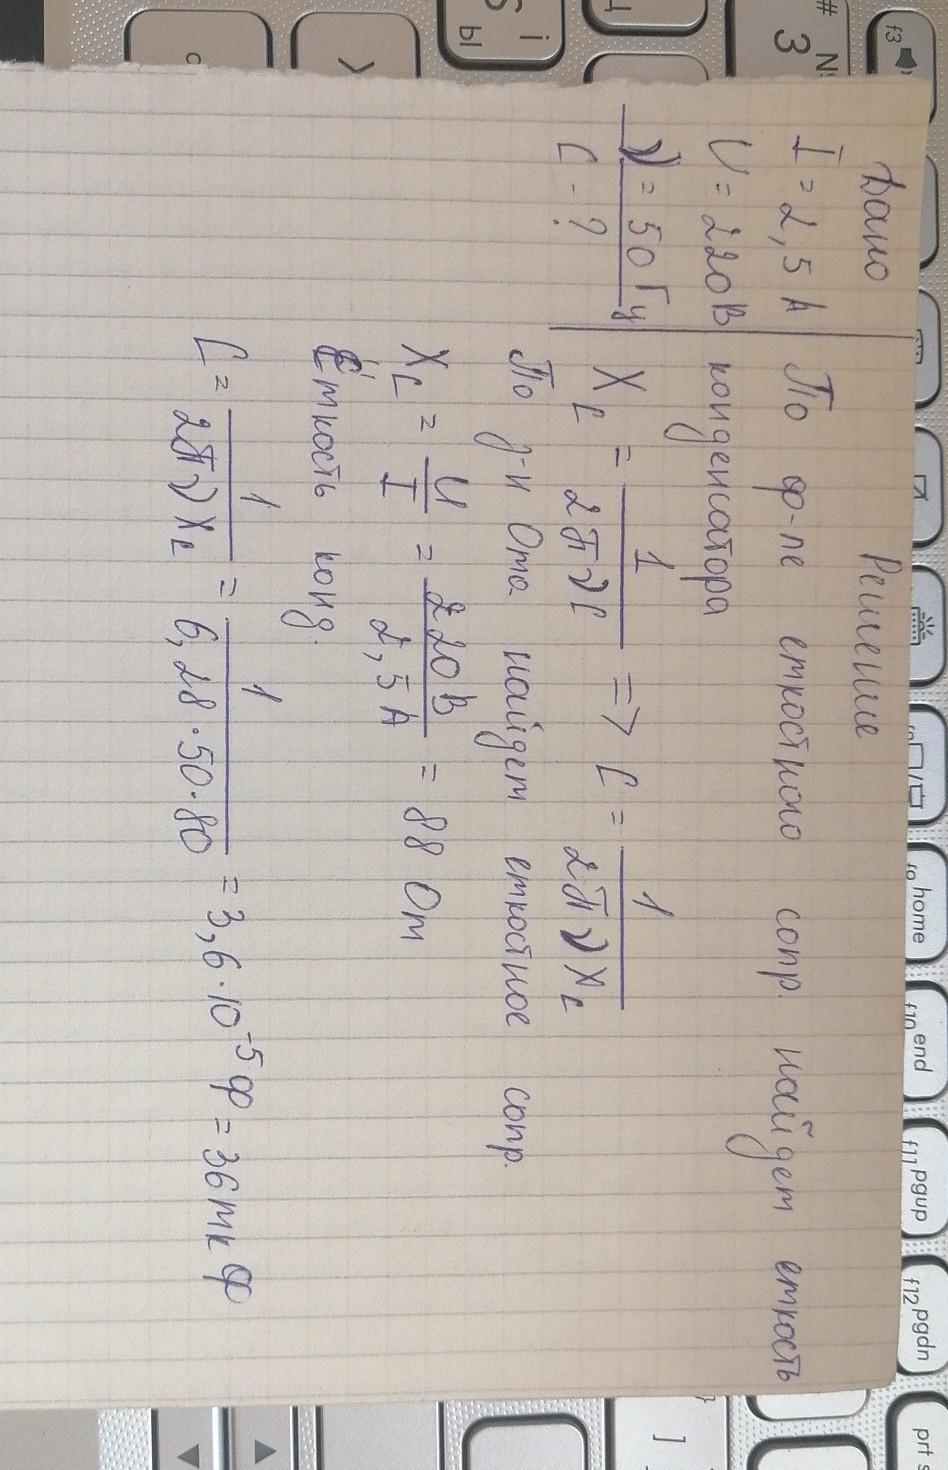 Дано
Решение
I = 2,5 А
U = 220В
ν = 50 Гц
C - ?
По ф-ле емкостного сопр. найдем емкость
конденсатора
X_C = 1/(2πνC) => C = 1/(2πνX_C)
По з-н Ома найдем емкостное сопр.
X_C = U/I = 220В/2,5А = 88 Ом
Емкость конд.
C = 1/(2πνX_C) = 1/(6,28·50·80) = 3,6·10⁻⁵ Ф = 36мкФ
# 3 №
f3
S і ы
>
f9 home
f10 end
f11 pgup
f12 pgdn
prt s
]